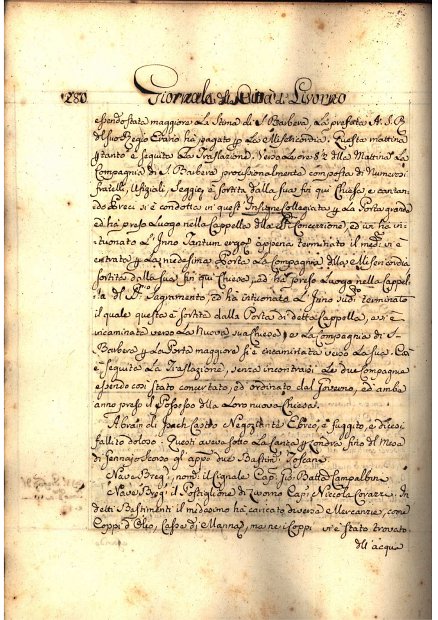 280 Giornale di Livorno
essendo stata maggiore La Stima di S. Barbera, La prefata A. S. R.
del suo Regio Erario ha pagato La Misericordia. Questa mattina
tanto è seguita La Traslazione. Verso Le ore 8½ della Mattina La
Compagnia di S. Barbera procissionalmente composta di Numerosi
fratelli, Ufiziali, è sortita dalla sua fin qui Chiesa e cantan
do Preci si è condotta in questa Insigne Collegiata La Porta grande
ed ha preso Luogo nella Cappella della SS. Concezione, ed ivi ha in
tuonato L'Inno Tantum ergo; appena terminato il medi. vi è
entrato La medesima Porta La Compagnia della Misericordia
sortita dalla sua fin qui Chiesa, ed ha preso Luogo nella Cappel
la del SS. Sagramento, ed ha intuonato L'Inno sud. terminato
il quale questa è sortita dalla Porta di detta Cappella, e si è
incaminata verso La Nuova sua Chiesa e La Compagnia di S.
Barbera La Porta maggiore si è incaminata verso La sua. Così
è seguita La Traslazione, senza incontrarsi Le due Compagnie
essendo così stato concertato, ed ordinato dal Governo, ed ambe
anno preso il Possesso della Loro nuova Chiesa.
Abram di Isach Castro Negoziante Ebreo, è fuggito, e dicesi
fallito doloso. Questi aveva sotto La Londra fino del Mese
di Gennajo scorso gl'appo due Bastim. Toscani
Nave Breg. nom. il Signale Cap. Gio. Batta Campallone
Nave Breg. il Postiglione di Livorno Cap. Niccola In
detti Bastimenti il medesimo ha caricato diverse Mercanzie, come
Coppi d'Olio, Casse di Manna, ma ne i Coppi vi è stato trovato
dell'acqua